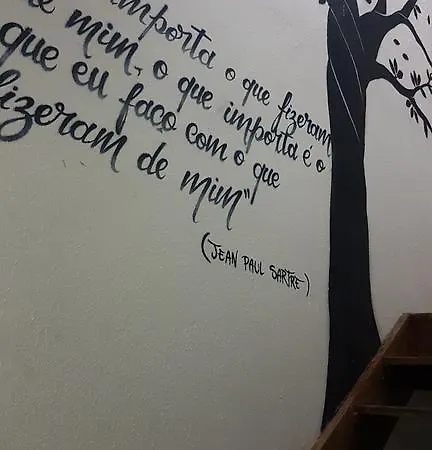 importa o que fizeram
de mim, o que importa é o
que eu faço com o que
fizeram de mim"
(JEAN PAUL SARTRE)